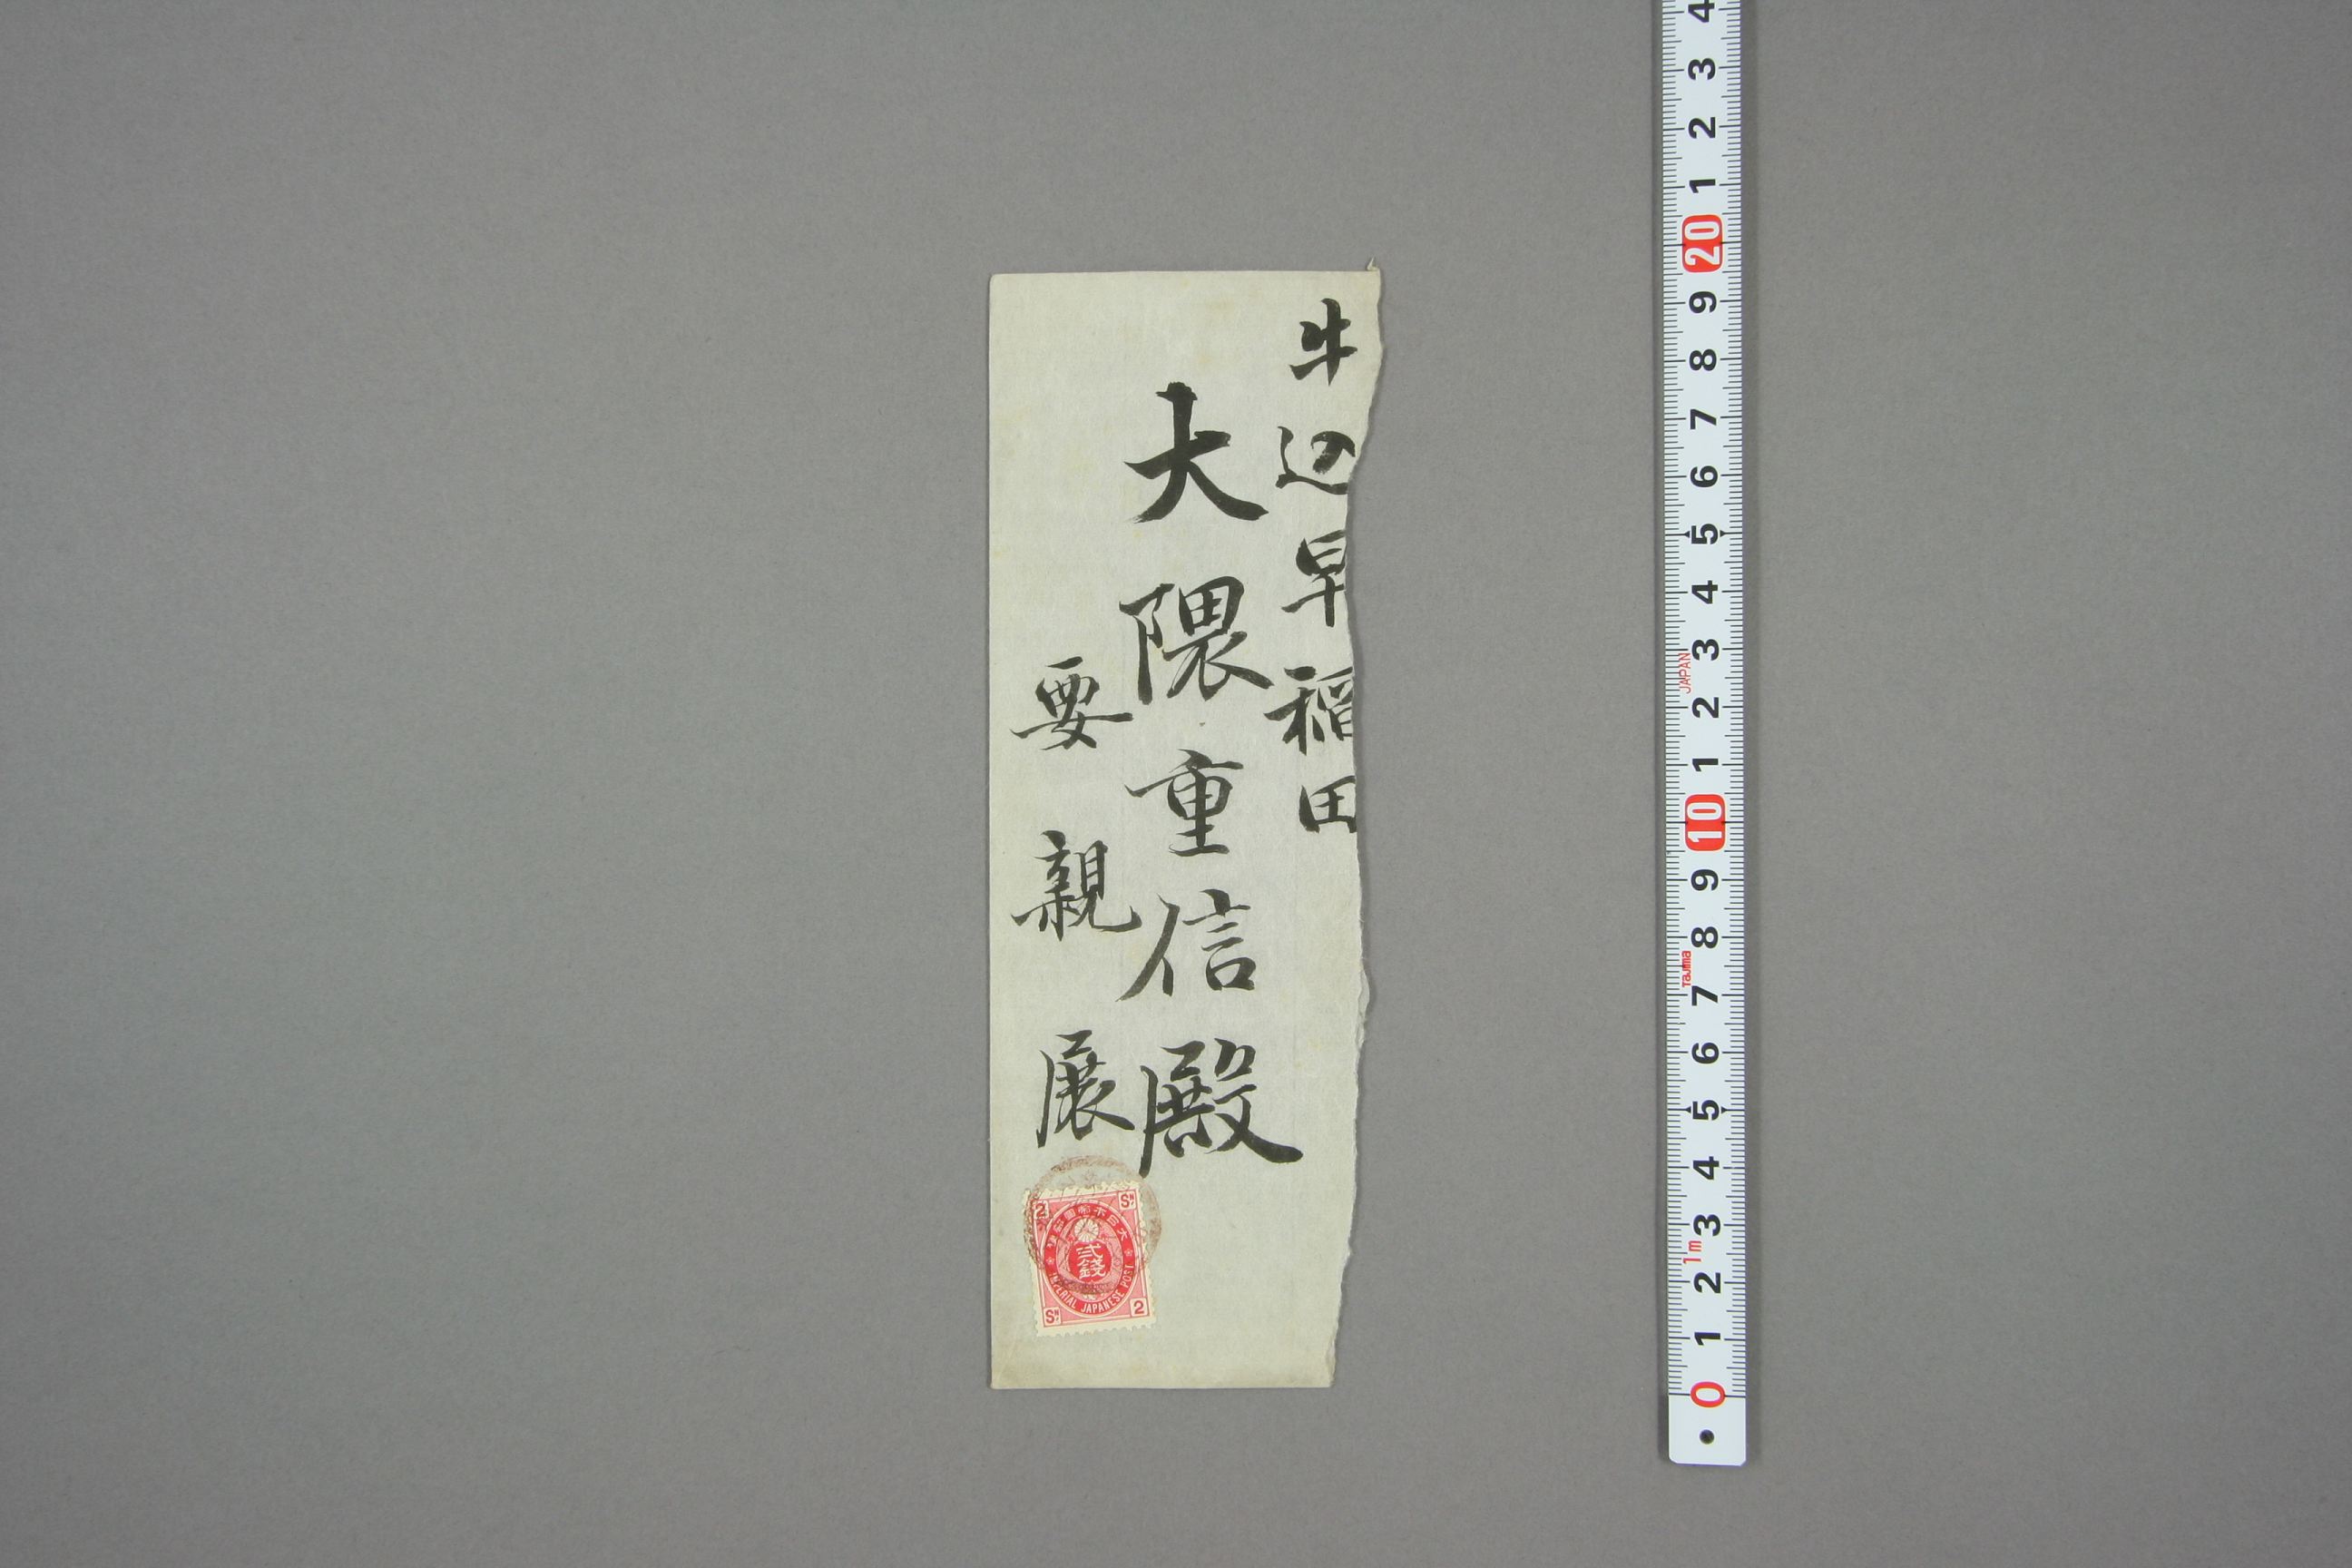 牛込早稲田
大隈重信殿
要親展
2 SN
大日本帝国郵便
弐銭
IMPERIAL JAPANESE POST
SN 2
4
3
2
1
20
9
8
7
6
5
4
3
JAPAN
2
1
10
9
8
Tajima
7
6
5
4
3
1m
2
1
0